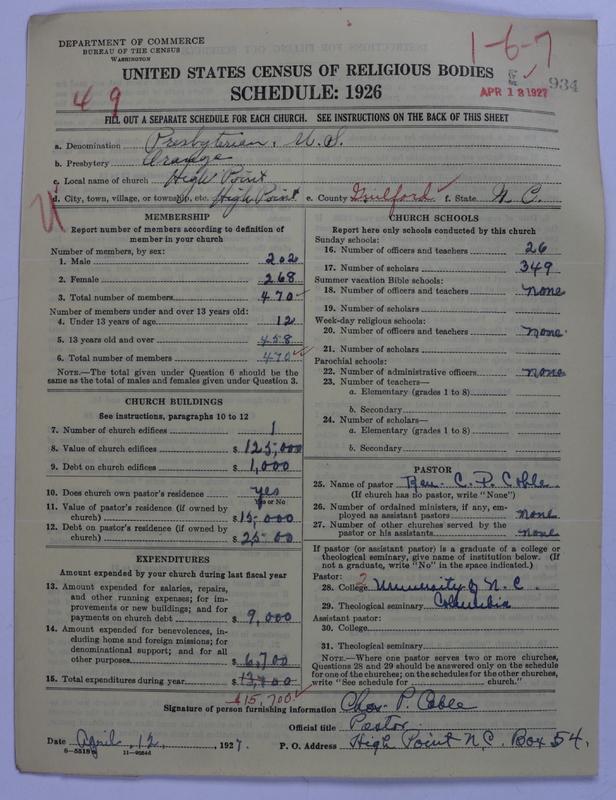 DEPARTMENT OF COMMERCE
BUREAU OF THE CENSUS
WASHINGTON
1-6-7
UNITED STATES CENSUS OF RELIGIOUS BODIES
SCHEDULE: 1926
49
APR 13 1927
934
FILL OUT A SEPARATE SCHEDULE FOR EACH CHURCH. SEE INSTRUCTIONS ON THE BACK OF THIS SHEET
a. Denomination Presbyterian, U.S.
b. Presbytery Orange
c. Local name of church High Point
d. City, town, village, or township, etc. High Point e. County Guilford f. State N.C.
MEMBERSHIP
Report number of members according to definition of
member in your church
Number of members, by sex:
1. Male 202
2. Female 268
3. Total number of members 470
Number of members under and over 13 years old:
4. Under 13 years of age 12
5. 13 years old and over 458
6. Total number of members 470
NOTE.—The total given under Question 6 should be
same as the total of males and females given under Question 3.
CHURCH BUILDINGS
See instructions, paragraphs 10 to 12
7. Number of church edifices 1
8. Value of church edifices $ 125,000
9. Debt on church edifices $ 1,000
10. Does church own pastor's residence yes
Yes or No
11. Value of pastor's residence (if owned by
church) $ 15,000
12. Debt on pastor's residence (if owned by
church) $ 25.00
EXPENDITURES
Amount expended by your church during last fiscal year
13. Amount expended for salaries, repairs,
and other running expenses; for im-
provements or new buildings; and for
payments on church debt $ 9,000
14. Amount expended for benevolences, in-
cluding home and foreign missions; for
denominational support; and for all
other purposes $ 6,700
15. Total expenditures during year $
$15,700
CHURCH SCHOOLS
Report here only schools conducted by this church
Sunday schools:
16. Number of officers and teachers 26
17. Number of scholars 349
Summer vacation Bible schools:
18. Number of officers and teachers none
19. Number of scholars
Week-day religious schools:
20. Number of officers and teachers none
21. Number of scholars
Parochial schools:
22. Number of administrative officers none
23. Number of teachers—
a. Elementary (grades 1 to 8)
b. Secondary
24. Number of scholars—
a. Elementary (grades 1 to 8)
b. Secondary
PASTOR
25. Name of pastor Rev. C. P. Coble
(If church has no pastor, write "None")
26. Number of ordained ministers, if any, em-
ployed as assistant pastors none
27. Number of other churches served by the
pastor or his assistants none
If pastor (or assistant pastor) is a graduate of a college or
theological seminary, give name of institution below. (If
not a graduate, write "No" in the space indicated.)
Pastor:
28. College University of N.C.
29. Theological seminary Columbia
Assistant pastor:
30. College
31. Theological seminary
NOTE.—Where one pastor serves two or more churches,
Questions 28 and 29 should be answered only on the schedule
for one of the churches; on the schedules for the other churches,
write "See schedule for church."
Signature of person furnishing information Chas. P. Coble
Official title Pastor
Date April 12, 1927. P. O. Address High Point N.C. Box 54.